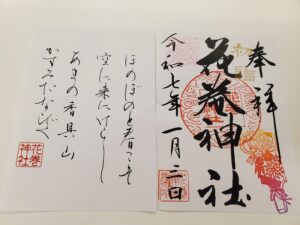 奉拝
花巻神社
令和七年一月二日
ほのぼのと春こそ
空に来にけらし
あまの香具山
かすみたなびく
花巻
神社